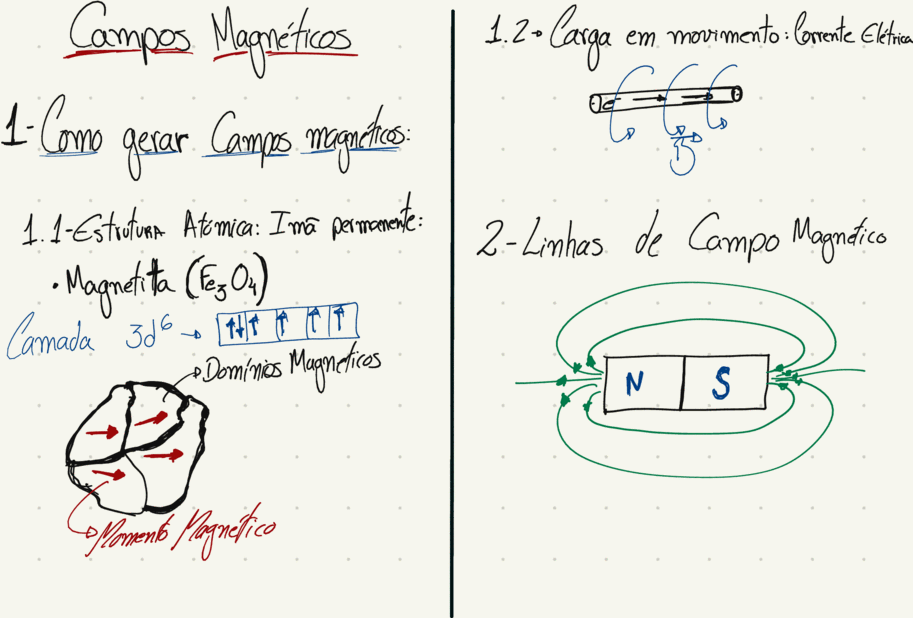 Campos Magnéticos
1- Como gerar Campos magnéticos:
1.1-Estrutura Atômica: Imã permanente:
• Magnetita (Fe₃O₄)
Camada 3d⁶ → ↑↓ ↑ ↑ ↑ ↑
→ Domínios Magnéticos
→ Momento Magnético
1.2→ Carga em movimento: Corrente Elétrica
e⁻
B
2-Linhas de Campo Magnético
N S